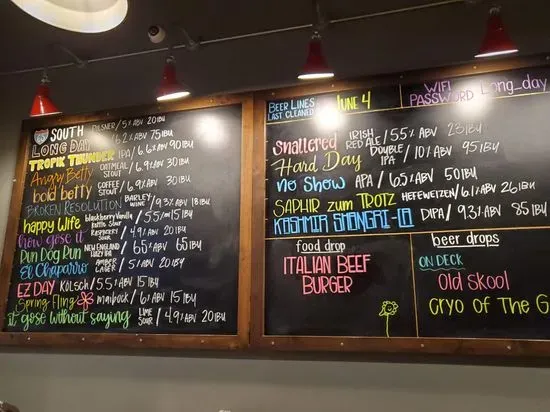 SOUTH PILSNER / 5% ABV 20 IBU
LONG DAY 6.2% ABV 75 IBU
TROPIK THUNDER IPA / 6.6% ABV 90 IBU
Angry Betty OATMEAL STOUT / 6.9% ABV 30 IBU
bold betty COFFEE STOUT / 6.9% ABV 30 IBU
BROKEN RESOLUTION BARLEY WINE / 9.3% ABV 18 IBU
happy Wife Blackberry Vanilla Kettle Sour / 5.5% 15 IBU
how gose it RASPBERRY SOUR / 4.9% ABV 20 IBU
Run Dog Run NEW ENGLAND HAZY IPA / 6.5% ABV 65 IBU
El Chaparro AMBER LAGER / 5% ABV 20 IBU
EZ DAY KÖLSCH / 5.5% ABV 15 IBU
Spring Fling maibock / 6% ABV 15 IBU
it gose without saying LIME SOUR / 4.9% ABV 20 IBU
BEER LINES LAST CLEANED JUNE 4
WIFI
PASSWORD Long_day
Smallered IRISH RED ALE / 5.5% ABV 23 IBU
Hard Day DOUBLE IPA / 10% ABV 95 IBU
no Show APA / 6.5% ABV 50 IBU
SAPHIR zum TROTZ HEFEWEIZEN / 6.1% ABV 26 IBU
KASHMIR SHANGRI-LA DIPA / 9.3% ABV 85 IBU
food drop
ITALIAN BEEF
BURGER
beer drops
ON DECK
Old Skool
Cryo of The